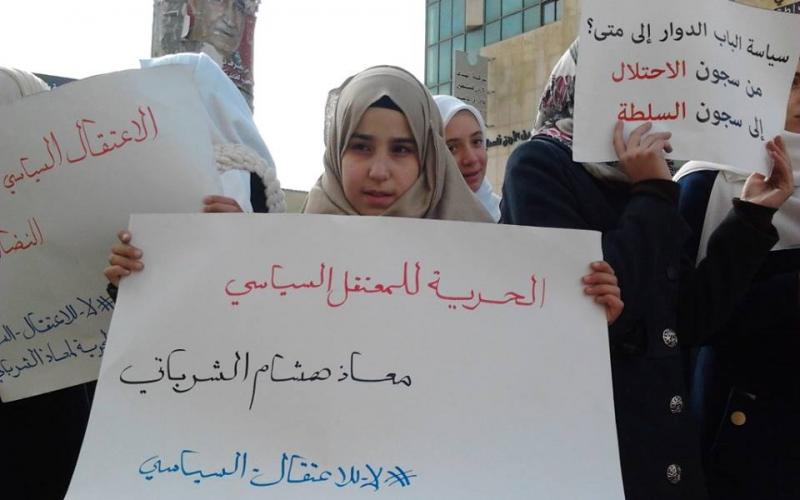 سياسة الباب الدوار إلى متى؟
من سجون الاحتلال
إلى سجون السلطة
الاعتقال السياسي
#لا-للاعتقال-
لمعاذ
الحرية للمعتقل السياسي
معاذ هشام الشرباتي
#لا-للاعتقال-السياسي